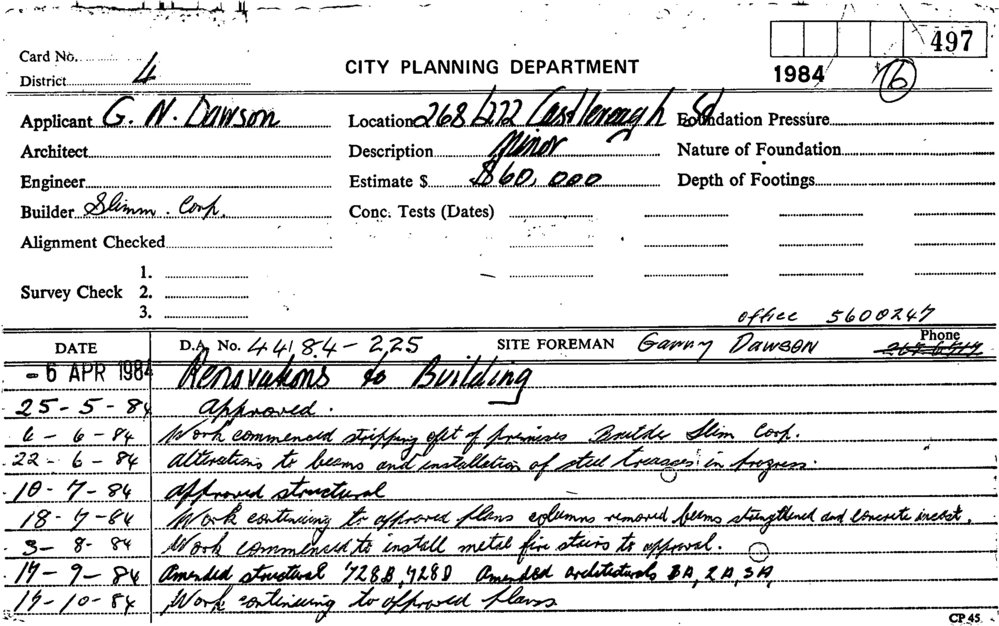 497
Card No.
District 4
CITY PLANNING DEPARTMENT
1984 16
Applicant G. N. Dawson Location 268/272 Castlereagh St Foundation Pressure
Architect Description Minor Nature of Foundation
Engineer Estimate $ $60,000 Depth of Footings
Builder Slimm. Corp. Conc. Tests (Dates)
Alignment Checked
1.
Survey Check 2.
3.
office 5600247
DATE D.A. No. 44 84-225 SITE FOREMAN Garry DAWSON Phone
- 6 APR 1984 Renovations to Building
25-5-84 approved.
6-6-84 Work commenced stripping of premises Builder Slim Corp.
22-6-84 Alterations to beams and installation of steel in progress.
10-7-84 approved structural
18-7-84 Work continuing to approved plans columns removed beams strengthened and concrete incast.
3-8-84 Work commenced to install metal fire stairs to approval.
17-9-84 Amended structural 728B, 728D Amended architecturals 2A, 3A
17-10-84 Work continuing to approved plans
CP 45